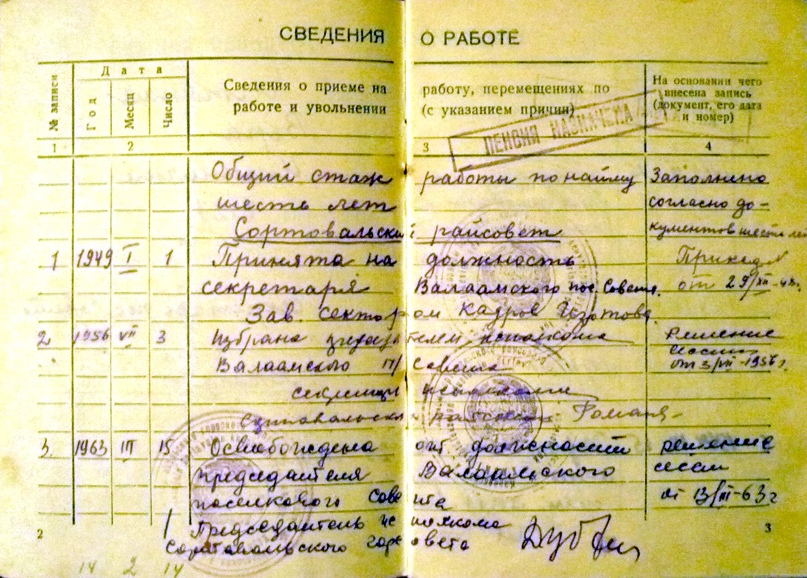 СВЕДЕНИЯ О РАБОТЕ
№ записи
Дата
Год
Месяц
Число
Сведения о приеме на работу, перемещениях по
работе и увольнении (с указанием причин)
На основании чего
внесена запись
(документ, его дата
и номер)
1 2 3 4
ПЕНСИЯ НАЗНАЧЕНА
Общий стаж работы по найму Заполнено
шесть лет согласно до-
Сортовальский райсовет кументов
1 1949 I 1 Принята на должность
секретаря Валаамского пос. Совета. от 29/XII-48г.
Зав. сектором кадров
2 1956 VII 3 Избрана председателем исполкома Решение
Валаамского п/Совета сессии
от 3/VII-1956г.
секретарь исполкома
Сортавальского райсовета
3. 1963 III 15 Освобождена от должности решение
председателя Валаамского сессии
поселкового Совета от 13/III-63г
Председатель исполкома
Сортавальского горсовета
2 3
14 2 14